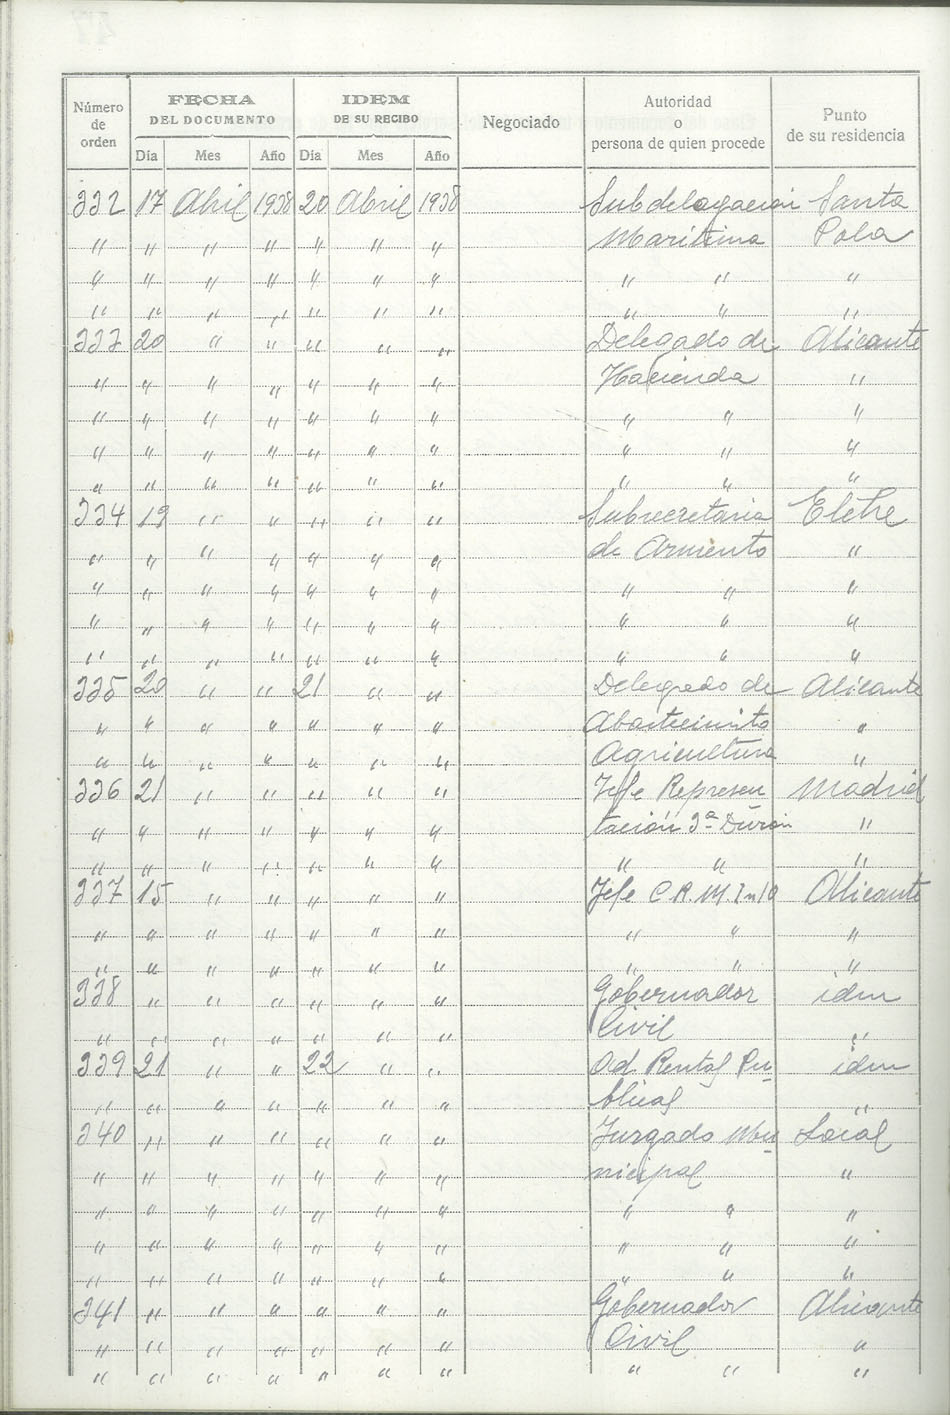 Número de orden | FECHA DEL DOCUMENTO | IDEM DE SU RECIBO | Negociado | Autoridad o persona de quien procede | Punto de su residencia
Día | Mes | Año | Día | Mes | Año
332 17 Abril 1938 20 Abril 1938 Subdelegación Santa
" " " " " " " Maritima Pola
" " " " " " " " " "
" " " " " " " " " "
333 20 " " " " " Delegado de Alicante
" " " " " " " Hacienda "
" " " " " " " " " "
" " " " " " " " " "
" " " " " " " " " "
334 19 " " " " " Subsecretaria Elche
" " " " " " " de Armento "
" " " " " " " " " "
" " " " " " " " " "
" " " " " " " " " "
335 20 " " 21 " " Delegado de Alicante
" " " " " " " Abastecimito "
" " " " " " " Agricultura "
336 21 " " " " " Jefe Represen Madrid
" " " " " " " tación 3ª "
" " " " " " " " " "
337 15 " " " " " Jefe C.R.M. Alicante
" " " " " " " " " "
" " " " " " " " " "
338 " " " " " " Gobernador idem
" " " " " " " Civil "
339 21 " " 22 " " Ad. Rentas Pu- idem
" " " " " " " blicas "
340 " " " " " " Juzgado Mu- Local
" " " " " " " nicipal "
" " " " " " " " " "
" " " " " " " " " "
" " " " " " " " " "
341 " " " " " " Gobernador Alicante
" " " " " " " Civil "
" " " " " " " " " "